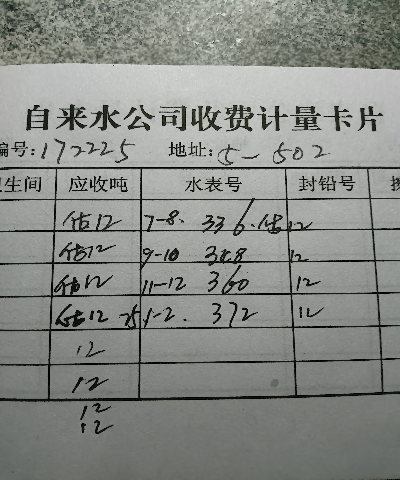 自来水公司收费计量卡片
编号:172225 地址:5-502
卫生间 应收吨 水表号 封铅号
估12 7-8. 336.估12
估12 9-10 348 12
估12 11-12 360 12
估12 25 1-2. 372 12
12
12
12
12